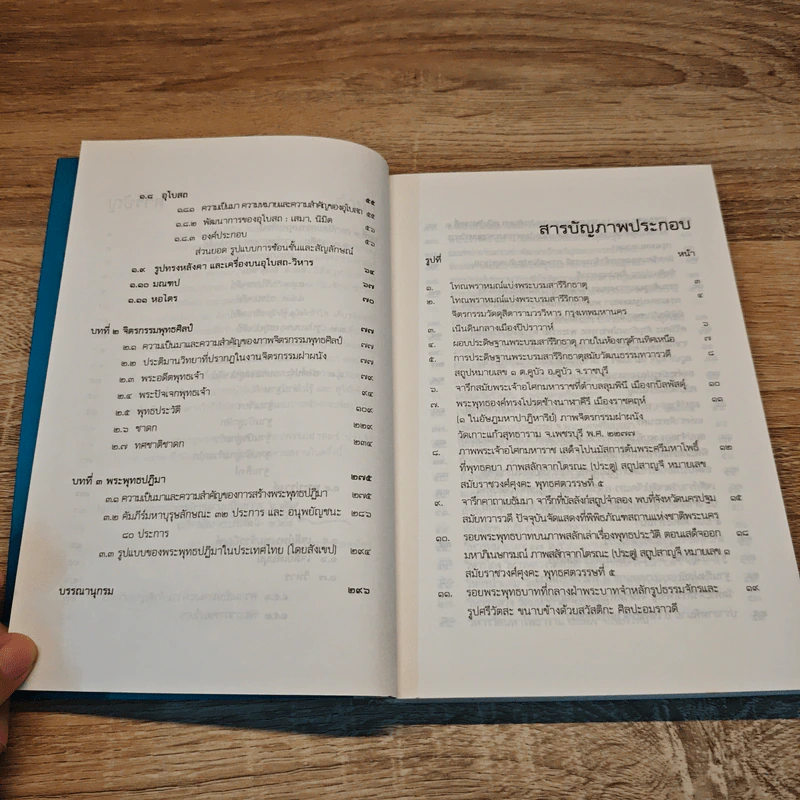 ๑.๘ อุโบสถ ๕๕
๑.๘.๑ ความเป็นมา ความหมายและความสำคัญของอุโบสถ ๕๕
๑.๘.๒ พัฒนาการของอุโบสถ : เสมา, นิมิต ๕๖
๑.๘.๓ องค์ประกอบ ๕๖
ส่วนยอด รูปแบบการซ้อนชั้นและสัญลักษณ์
๑.๙ รูปทรงหลังคา และเครื่องบนอุโบสถ-วิหาร ๖๔
๑.๑๐ มณฑป ๖๗
๑.๑๑ หอไตร ๗๐
บทที่ ๒ จิตรกรรมพุทธศิลป์ ๗๗
๒.๑ ความเป็นมาและความสำคัญของภาพจิตรกรรมพุทธศิลป์ ๗๗
๒.๒ ประติมานวิทยาที่ปรากฏในงานจิตรกรรมฝาผนัง ๗๗
๒.๓ พระอดีตพุทธเจ้า ๗๙
๒.๔ พระปัจเจกพุทธเจ้า ๙๔
๒.๕ พุทธประวัติ ๑๐๙
๒.๖ ชาดก ๒๒๙
๒.๗ ทศชาติชาดก ๒๓๔
บทที่ ๓ พระพุทธปฏิมา ๒๗๕
๓.๑ ความเป็นมาและความสำคัญของการสร้างพระพุทธปฏิมา ๒๗๕
๓.๒ คัมภีร์มหาบุรุษลักษณะ ๓๒ ประการ และ อนุพยัญชนะ ๒๘๖
๘๐ ประการ
๓.๓ รูปแบบของพระพุทธปฏิมาในประเทศไทย (โดยสังเขป) ๒๙๔
บรรณานุกรม ๒๙๖
สารบัญภาพประกอบ
รูปที่ หน้า
๑. โทณพราหมณ์แบ่งพระบรมสารีริกธาตุ ๓
๒. โทณพราหมณ์แบ่งพระบรมสารีริกธาตุ ๔
จิตรกรรมวัดดุสิดารามวรวิหาร กรุงเทพมหานคร
๓. เนินดินกลางเมืองปิปราวาห์ ๖
๔. ผอบประดิษฐานพระบรมสารีริกธาตุ ภายในห้องกรุด้านทิศเหนือ ๗
๕. การประดิษฐานพระบรมสารีริกธาตุสมัยวัฒนธรรมทวารวดี ๘
สถูปหมายเลข ๑ ต.คูบัว อ.คูบัว จ.ราชบุรี
๖. จารึกสมัยพระเจ้าอโศกมหาราชที่ตำบลลุมพินี เมืองกบิลพัสดุ์ ๑๐
๗. พระพุทธองค์ทรงโปรดช้างนาฬาคีรี เมืองราชคฤห์ ๑๑
(๑ ในอัษฎมหาปาฏิหาริย์) ภาพจิตรกรรมฝาผนัง
วัดเกาะแก้วสุทธาราม จ.เพชรบุรี พ.ศ. ๒๒๗๗
๘. ภาพพระเจ้าอโศกมหาราช เสด็จไปนมัสการต้นพระศรีมหาโพธิ์ ๑๓
ที่พุทธคยา ภาพสลักจากโตรณะ (ประตู) สถูปสาญจี หมายเลข
สมัยราชวงศ์ศุงคะ พุทธศตวรรษที่ ๕
๙. จารึกคาถาเยธัมมา จารึกที่บัลลังก์สถูปจำลอง พบที่จังหวัดนครปฐม ๑๕
สมัยทวารวดี ปัจจุบันจัดแสดงที่พิพิธภัณฑสถานแห่งชาติพระนคร
๑๐. รอยพระพุทธบาทบนภาพสลักเล่าเรื่องพุทธประวัติ ตอนเสด็จออก ๑๘
มหาภิเนษกรมณ์ ภาพสลักจากโตรณะ (ประตู) สถูปสาญจี หมายเลข ๑
สมัยราชวงศ์ศุงคะ พุทธศตวรรษที่ ๕
๑๑. รอยพระพุทธบาทที่กลางฝ่าพระบาทจำหลักรูปธรรมจักรและ ๑๙
รูปศรีวัตสะ ขนาบข้างด้วยสวัสติกะ ศิลปะอมราวดี